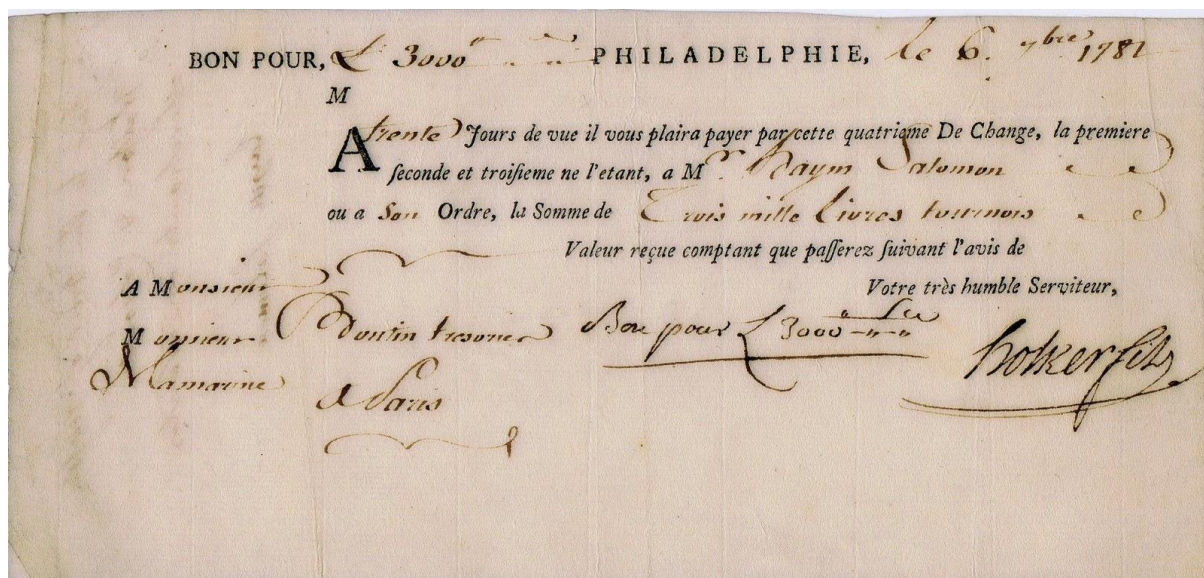 BON POUR, L 3000 PHILADELPHIE, le 6. 7bre 1781
M
A trente Jours de vue il vous plaira payer par cette quatrieme De Change, la premiere
seconde et troisieme ne l'etant, a Mr. Haym Salomon
ou a Son Ordre, la Somme de Trois mille Livres tournois
Valeur reçue comptant que passerez suivant l'avis de
A Monsieur
Votre très humble Serviteur,
Monsieur Boutin tresorier Bon pour L 3000
Lamarine
a Paris
holker fils